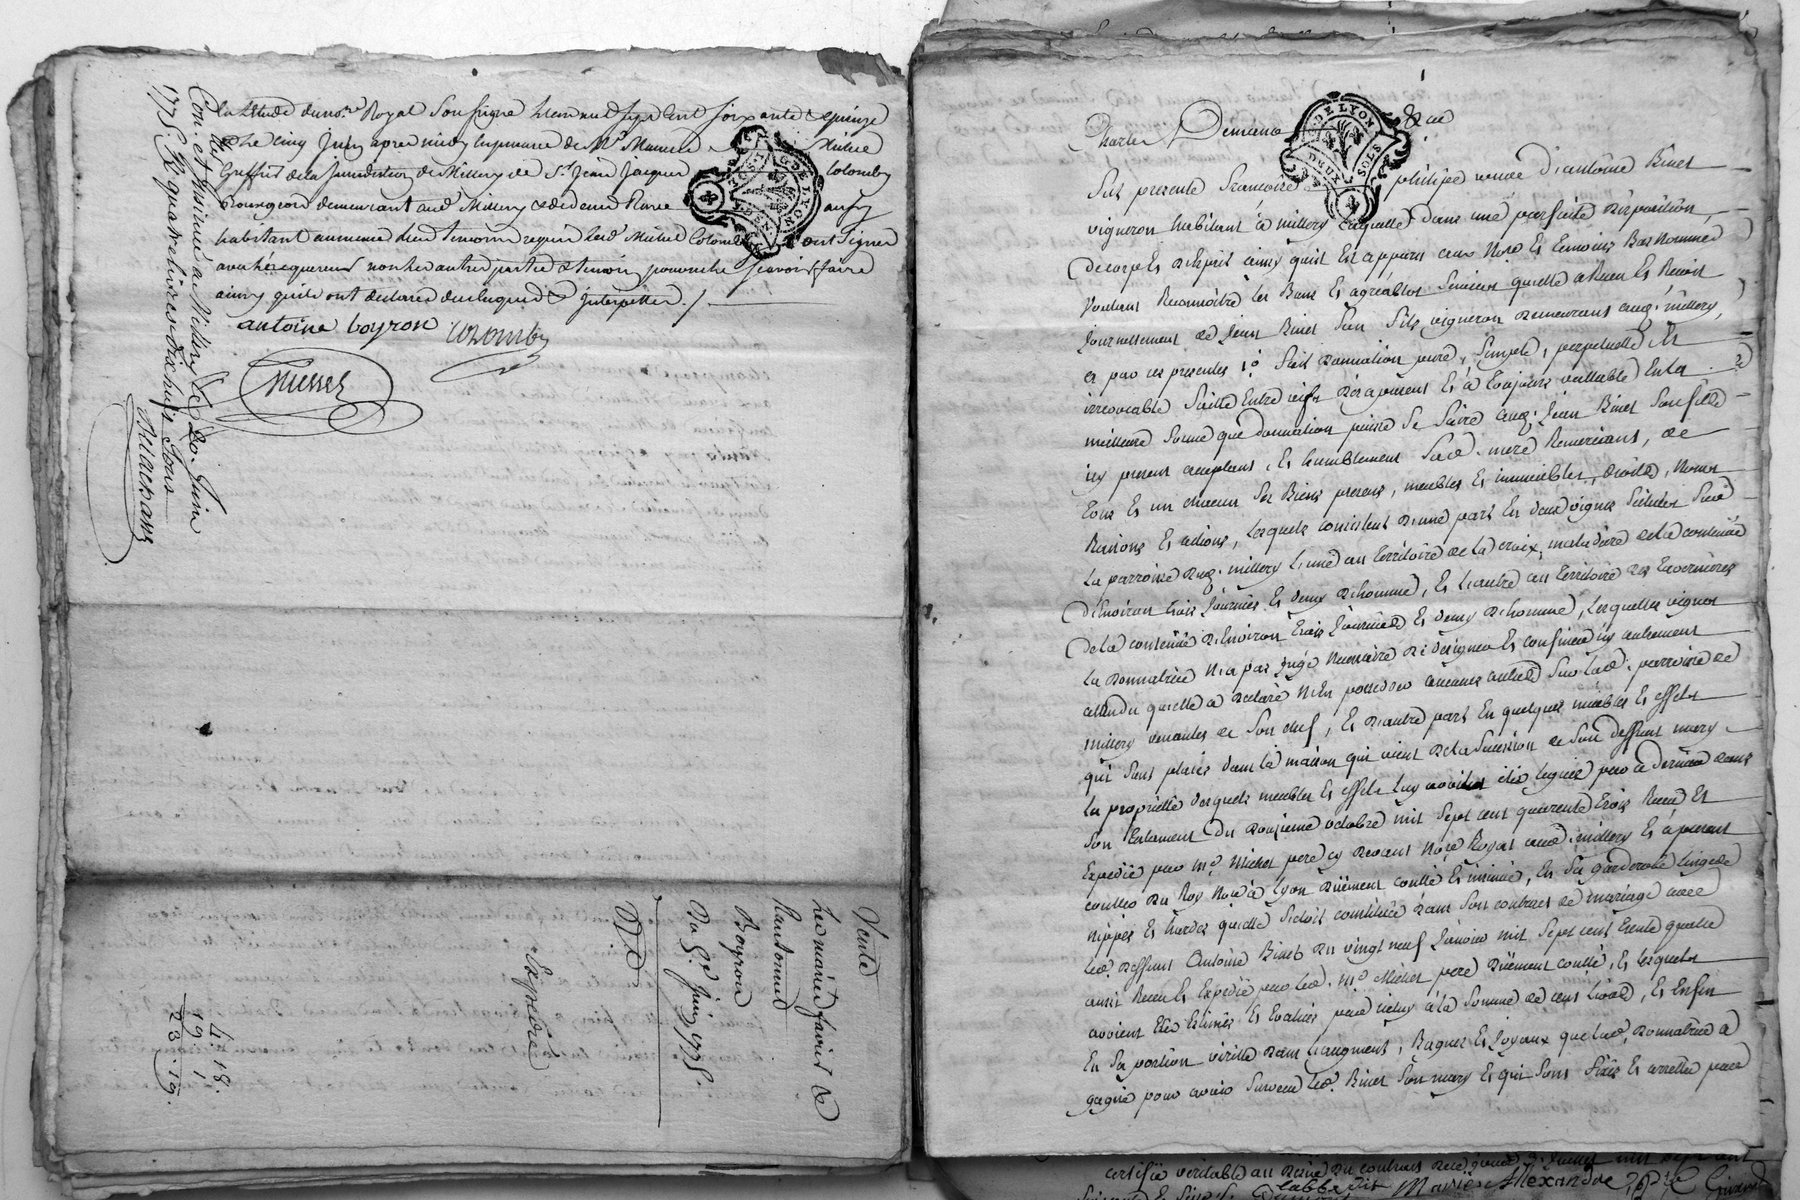 En l'étude du no.re Royal soussigné l'an mil sept cent soixante & quinze
& le cinq Juin apres midy en presence de M.e Michel
Greffier de la Jurisdiction de Millery de S.r Jean Jacques Colomby
Bourgeois demeurant aud. Millery & de
habitant au meme lieu temoins requis led. Michel Colomby ont signé
avec le requereur non les autres parties & temoin pour ne le sçavoir faire
ainsy qu'ils ont déclaré de ce enquis & interpellés ./.
antoine boyron Colomby
Con.llé et Insinué a Millery le 20. Juin
1775 R. quatre livres dix huit sous
Vente
Les mariés favier &
Boyron
Du 5.e Juin 1775.
Expédiée
4. 18.
19. 1
23. 19.
DE LYON
DEUX SOLS
G. DE LYON
Par devant &ca
Fut presente françoise philipe veuve d'antoine Binet
vigneron habitant à millery laquelle dans une parfaite disposition
de corps Et d'Esprit ainsy qu'il Est apparu aux No.re Et temoins Bas Nommés
voulant Reconnoitre les Bons Et agréables services quelle a Receu Et Reçoit
journellement de Jean Binet son fils vigneron demeurant aud. millery,
a par ces presentes fait donnation pure, simple, perpetuelle Et
irrevocable faitte Entre vifs dès à present Et à toujours vallable En la
meilleure forme que donnation puisse se faire aud. Jean Binet son fils
icy present acceptant, Et humblement sad. mere Remerciant, de
tous Et un chacun ses Biens presens, meubles Et immeubles, droits, Noms
Raisons Et actions, lesquels consistent d'une part En deux vignes situées sur
la parroisse dud. millery l'une au territoire de la croix maladiere de la contenüe
d'Environ trois journées Et demy d'homme, Et l'autre au territoire des tavernieres
de la contenüe d'Environ trois journées Et demy d'homme, lesquelles vignes
la donnatrice n'a pas jugé necessaire de designer Et confiner icy autrement
attendu quelle a declaré n'En posseder aucunes autres sur lad. parroisse de
millery venantes de son chef, Et d'autre part En quelques meubles Et effets
qui sont placés dans la maison qui vient de la succession de son deffunt mary
la proprieté desquels meubles Et effets luy avoit été leguée par ce dernier dans
son testament du onzieme octobre mil sept cent quarente trois Receu Et
Expedié par M.e Michel pere cy devant No.re Royal aud. millery Et à present
du Roy No.re à Lyon düement coullé Et insinué, En sa garderobe linges
nippes Et hardes quelle s'étoit constituée dans son contract de mariage avec
led. deffunt Antoine Binet du vingt neuf janvier mil sept cent trente quattre
aussi Receu Et Expedié par led. M.e Michel pere düement coullé, Et lesquels
avoient Eté Estimés Et Evalués par iceluy à la somme de cent livres, Et Enfin
En sa portion virille dans l'augment, Bagues Et Joyaux que lad. donnatrice a
gagné pour avoir survecu led. Binet son mary Et qui sont fixés Et arrettés par
certifie veritable au desir du contract
Marie Alexandre